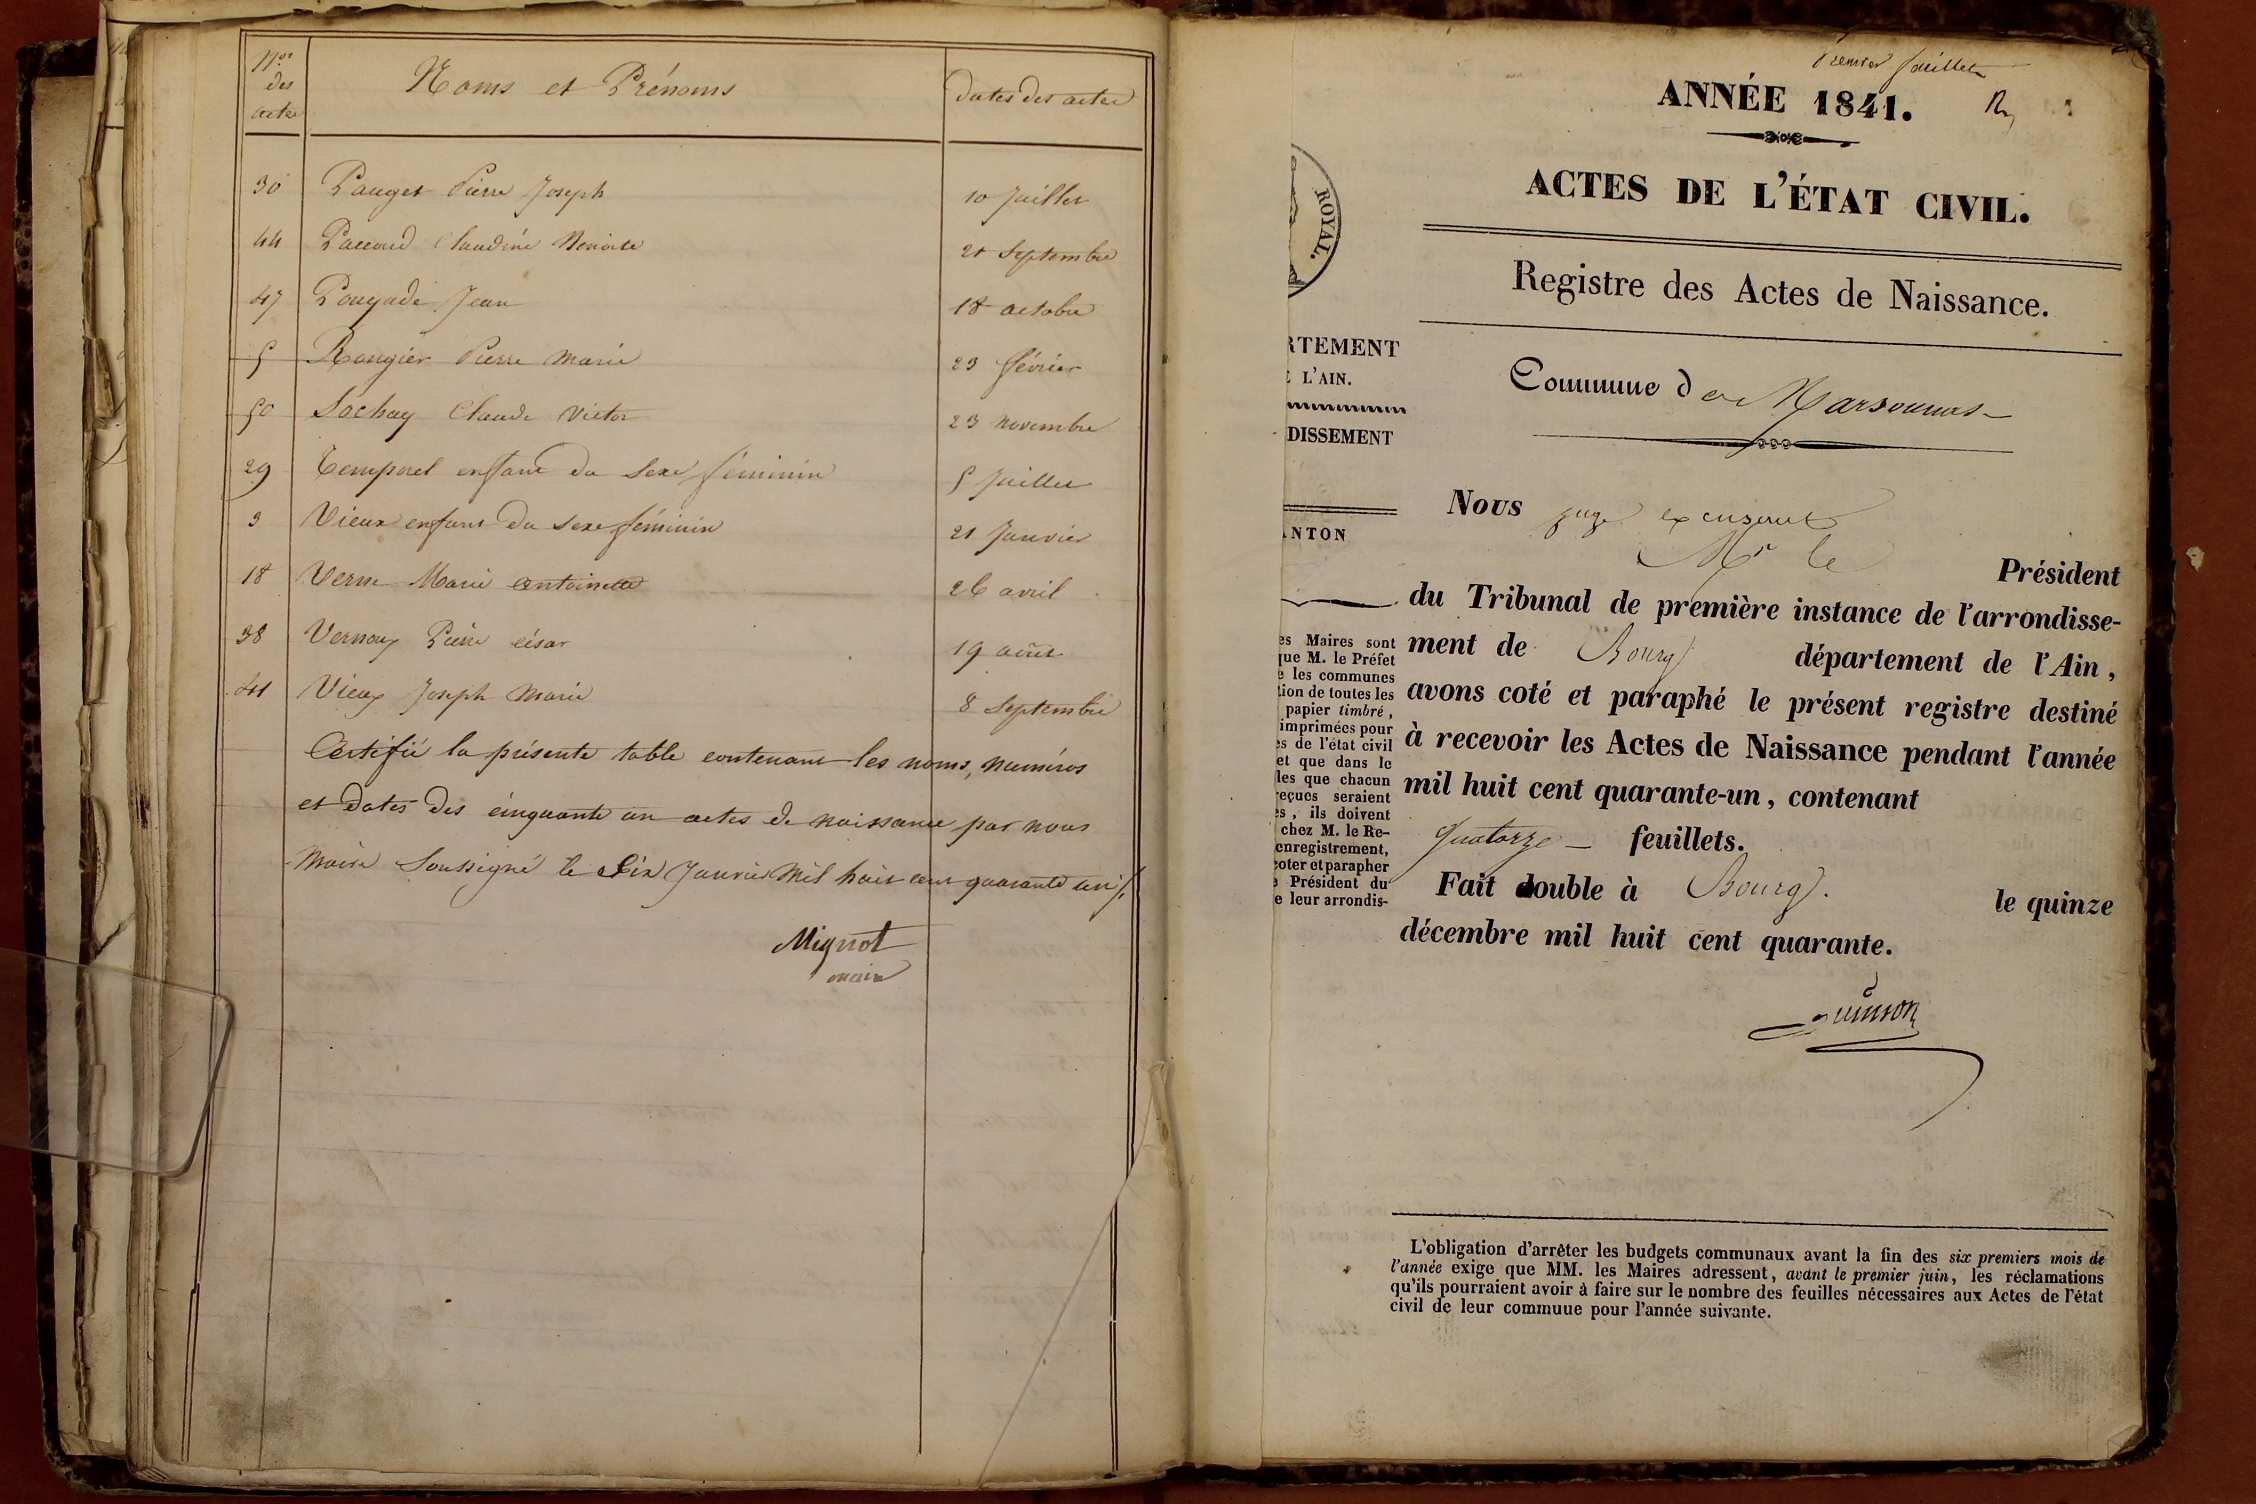 Nos des actes Noms et Prénoms dates des actes
30 Pauget Pierre Joseph 10 Juillet
44 Paccoud Claudine Benoite 21 Septembre
47 Pougade Jean 18 octobre
5 Rougier Pierre Marie 23 février
50 Sochay Claude Victor 23 novembre
29 Temporel enfant du Sexe féminin 5 Juillet
3 Vieux enfant du sexe féminin 21 Janvier
18 Verne Marie Antoinette 26 avril
38 Vernoux Pierre césar 19 août
41 Vieux Joseph Marie 8 Septembre
Certifié la présente table contenant les noms, numéros
et dates des cinquante un actes de naissance par nous
Maire Soussigné le dix Janvier Mil huit cent quarante un
Mignot
maire
Premier feuillet
ANNÉE 1841.
ACTES DE L'ÉTAT CIVIL.
ROYAL.
Registre des Actes de Naissance.
RTEMENT
L'AIN.
DISSEMENT
NTON
Commune de Marsonnas
Nous juge excusant
Mr le Président
du Tribunal de première instance de l'arrondisse-
ment de Bourg département de l'Ain,
avons coté et paraphé le présent registre destiné
à recevoir les Actes de Naissance pendant l'année
mil huit cent quarante-un, contenant
quatorze feuillets.
Fait double à Bourg. le quinze
décembre mil huit cent quarante.
es Maires sont
que M. le Préfet
e les communes
tion de toutes les
papier timbré,
imprimées pour
es de l'état civil
et que dans le
les que chacun
reçues seraient
es, ils doivent
chez M. le Re-
enregistrement,
coter et parapher
e Président du
e leur arrondis-
L'obligation d'arrêter les budgets communaux avant la fin des six premiers mois de
l'année exige que MM. les Maires adressent, avant le premier juin, les réclamations
qu'ils pourraient avoir à faire sur le nombre des feuilles nécessaires aux Actes de l'état
civil de leur commuue pour l'année suivante.